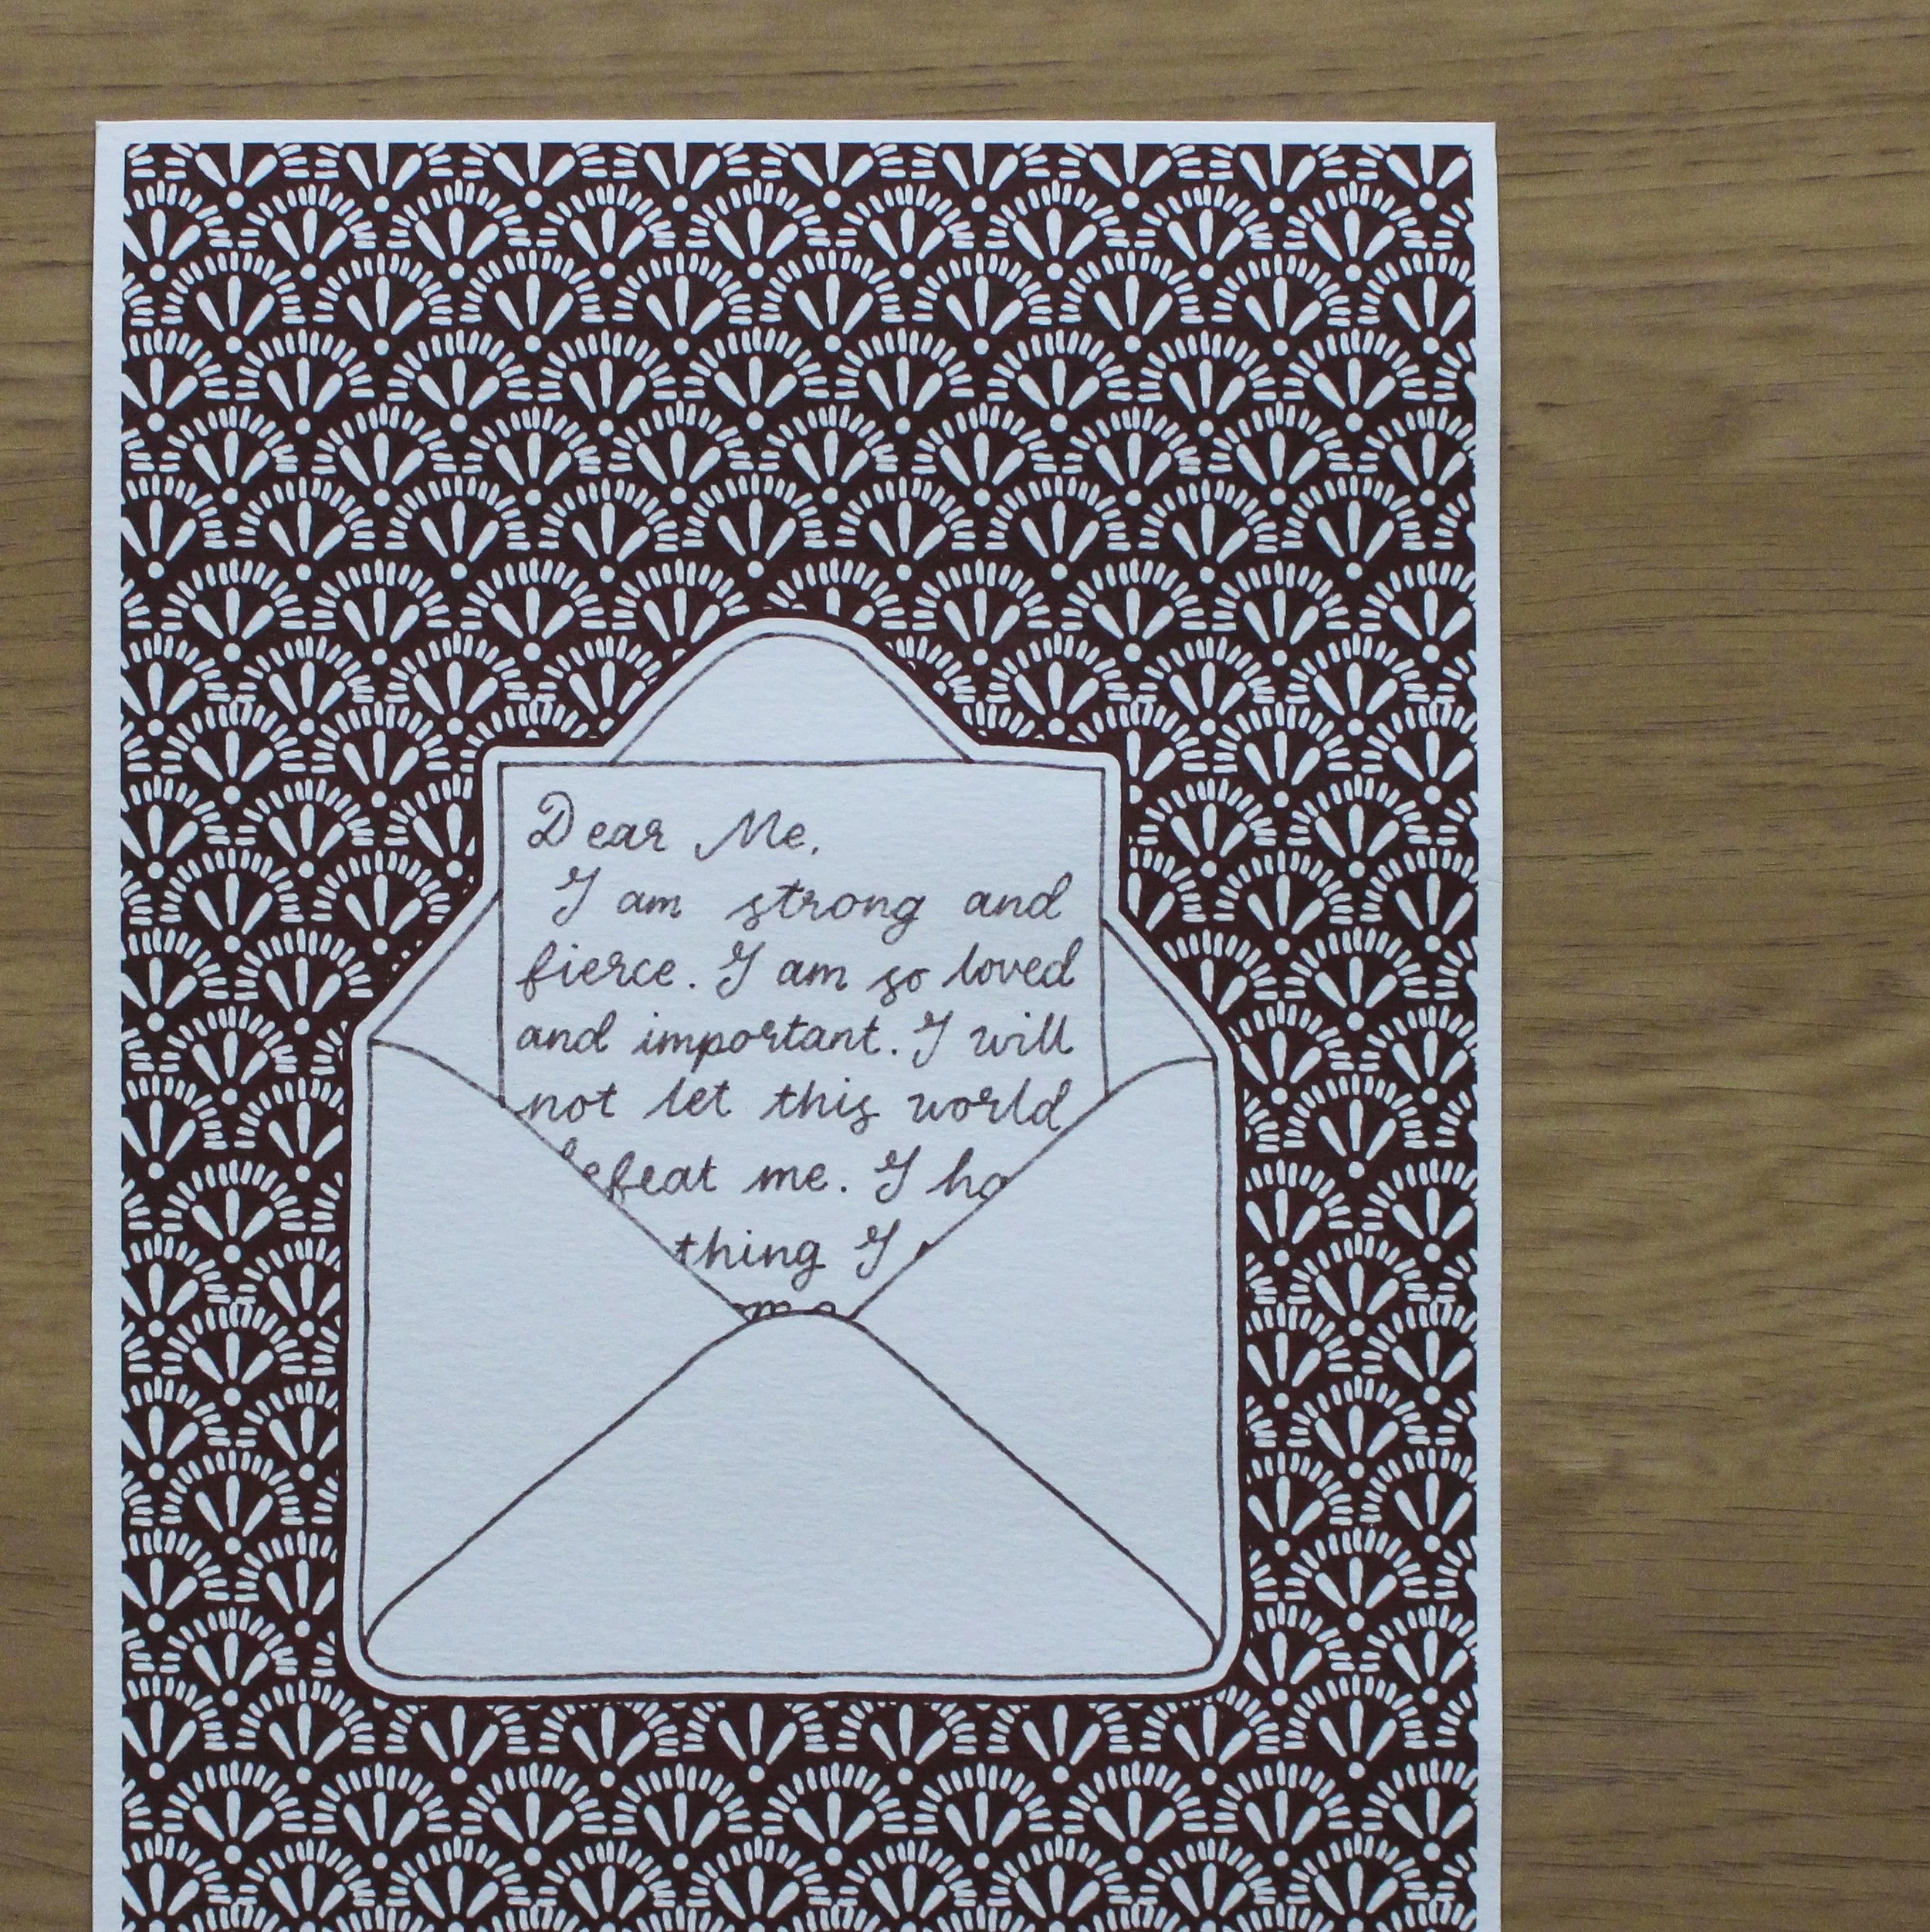 Dear Me,
I am strong and
fierce. I am so loved
and important. I will
not let this world
defeat me. I
thing I